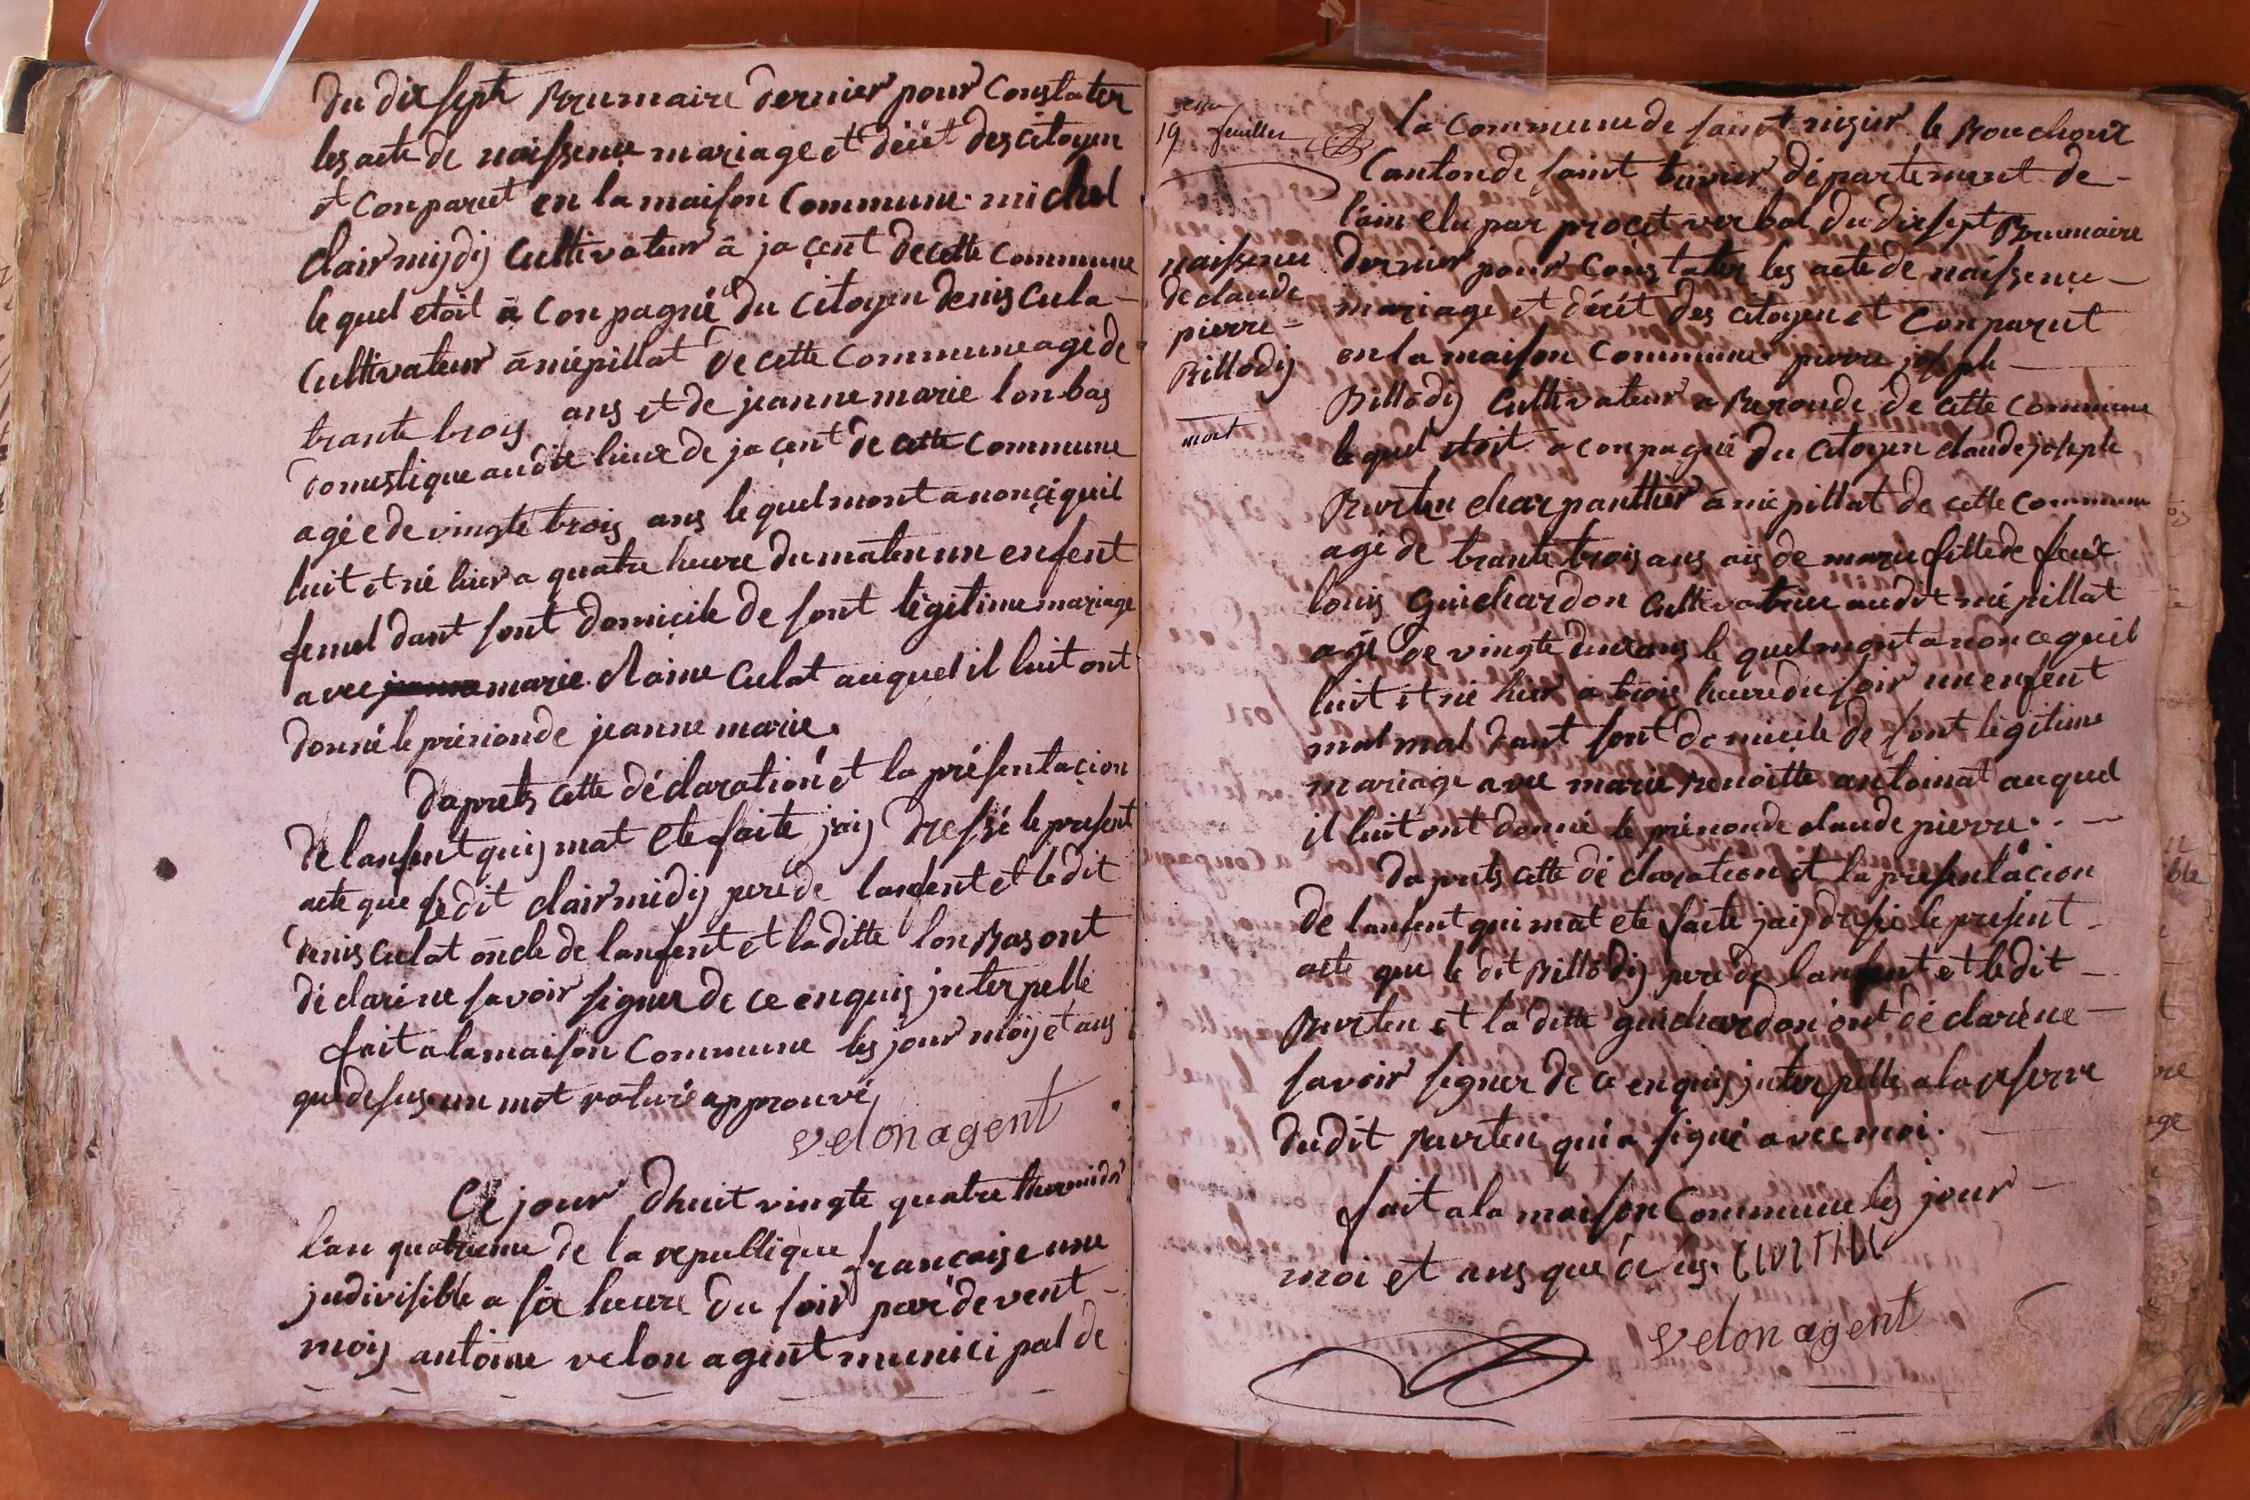 du dixsept Brumaire dernier pour Constater
les acte de naissence mariage et décèt des citoyen
et Conparut en la maison Commune michel
clair mijdij Cultivateur à jacent de cette Commune
le quel etoit a Conpagné du Citoyen denis Cula-
Cultivateur à miépillat de cette Commune agé de
trante trois ans et de jeanne marie lonbas
domestique audit lieux de jacent de cette Commune
agée de vingte trois ans le quel mont anonçé quil
luit et né hier a quatre heure du maten un enfent
femel dant sont domicile de sont légitime mariage
avec marie Claine Culat auquel il luit ont
donné le prénionde jeanne marie.
daprets cette déclaration et la présentaçion
de lanfent quij mat ete faite jaij dressé le present
acte que ledit clair midij pere de lanfent et ledit
denis Culat oncle de lanfent et laditte lonBas ont
déclaré ne savoir signer de ce enquis jnterpellé
fait a la maison Commune les jour moij et ans
que desus un mot raturé approuvé
velon agent
Ce jour dhuit vingte quatre thermidor
l'an quatrieme de la republique francaise une
jndivisible a six heure du soir par devent
moij antoine velon agent munici pal de
19 feuillet
la Commune de saint nisier le Bouchoux
Canton de saint trivier département de-
l'ain elu par procet verbal du dixsept Brumaire
dernier pour Constater les acte de naissence-
mariage et décèt des citoyen et Conparut
en la maison Commune pierre joseph
Billodij Cultivateur a Beronde de cette Commune
le quel etoit a conpagné du Citoyen claude joseph
Burten charpanttier à miépillat de cette Commune
agé de trante trois ans ais de marie fille de feux
louis Guichardon Cultivatrice audit miépillat
agé de vingte deux ans le quel mont anonce quil
luit et né hier a trois heure du soir un enfent
mal mal dant sont domicile de sont légitime
mariage avec marie Benoitte antoinat auquel
il luit ont donné le prénonde claude pierre.
daprets cette déclaration et la presentacion
de lanfent qui mat ete faite jaij dressé le present
acte que le dit Billodij pere de lanfent et ledit
Burten et la ditte guichardon ont déclaré ne
savoir signer de ce enquis jnterpelle a la reserve
dudit Burten qui a signé avec moi.
fait a la maison Commune les jour
moi et ans que
velon agent
naissence
de claude
pierre-
Billodij
mort